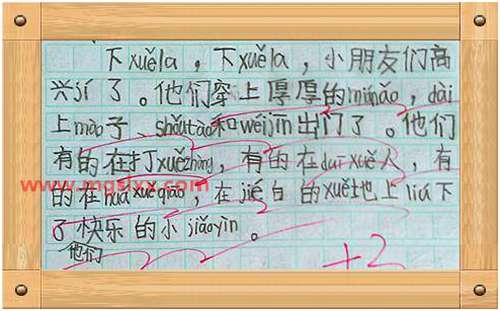 下xuěla，下xuěla，小朋友们高
兴jí了。他们穿上厚厚的miánǎo，dài
上mào子、shǒutào和wéijīn出门了。他们
有的在打xuězhàng，有的在duī xuě人，有
的在huá xuě qiāo，在jié白的xuě地上liú下
了快乐的小jiǎoyìn。
他们
+2
www.mgslxx.com